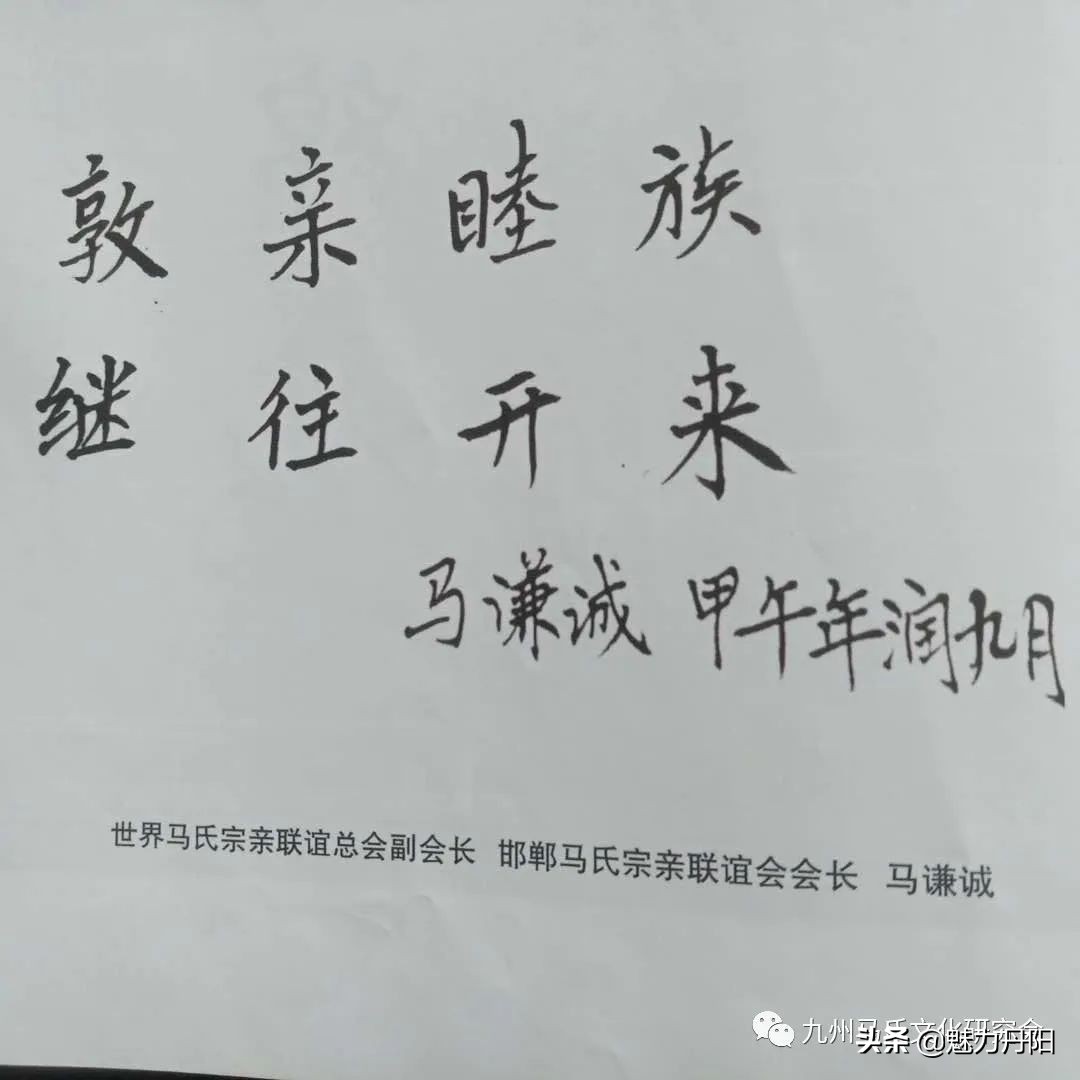 敦亲睦族
继往开来
马谦诚 甲午年润九月
世界马氏宗亲联谊总会副会长 邯郸马氏宗亲联谊会会长 马谦诚
九州马氏文化研究会
头条 @魅力丹阳